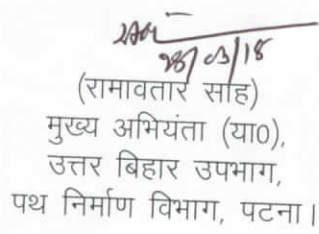 28/03/18
(रामावतार साह)
मुख्य अभियंता (या0),
उत्तर बिहार उपभाग,
पथ निर्माण विभाग, पटना।